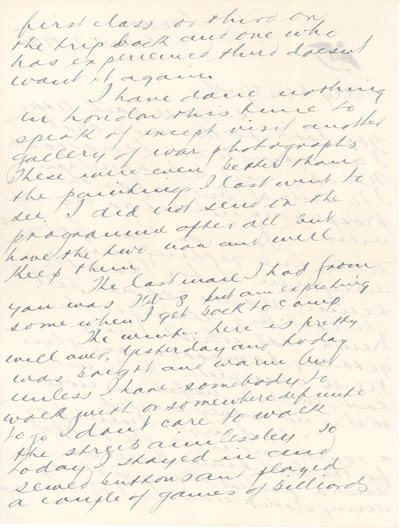 first class or third on
the trip back and one who
has experienced third doesn't
want it again.
I have done nothing
in London this time to
speak of except visit another
gallery of war photographs.
These were even better than
the paintings I last went to
see. I did not send on the
programme after all but
have the two now and will
keep them
The last mail I had from
you was but am expecting
some when I get back to camp.
The winter here is pretty
well over, yesterday and today
was bright and warm but
unless I have somebody to
walk with or somewhere definite
to go I don't care to walk
the streets aimlessley. So
today I stayed in and
sewed buttons and played
a couple of games of billiards